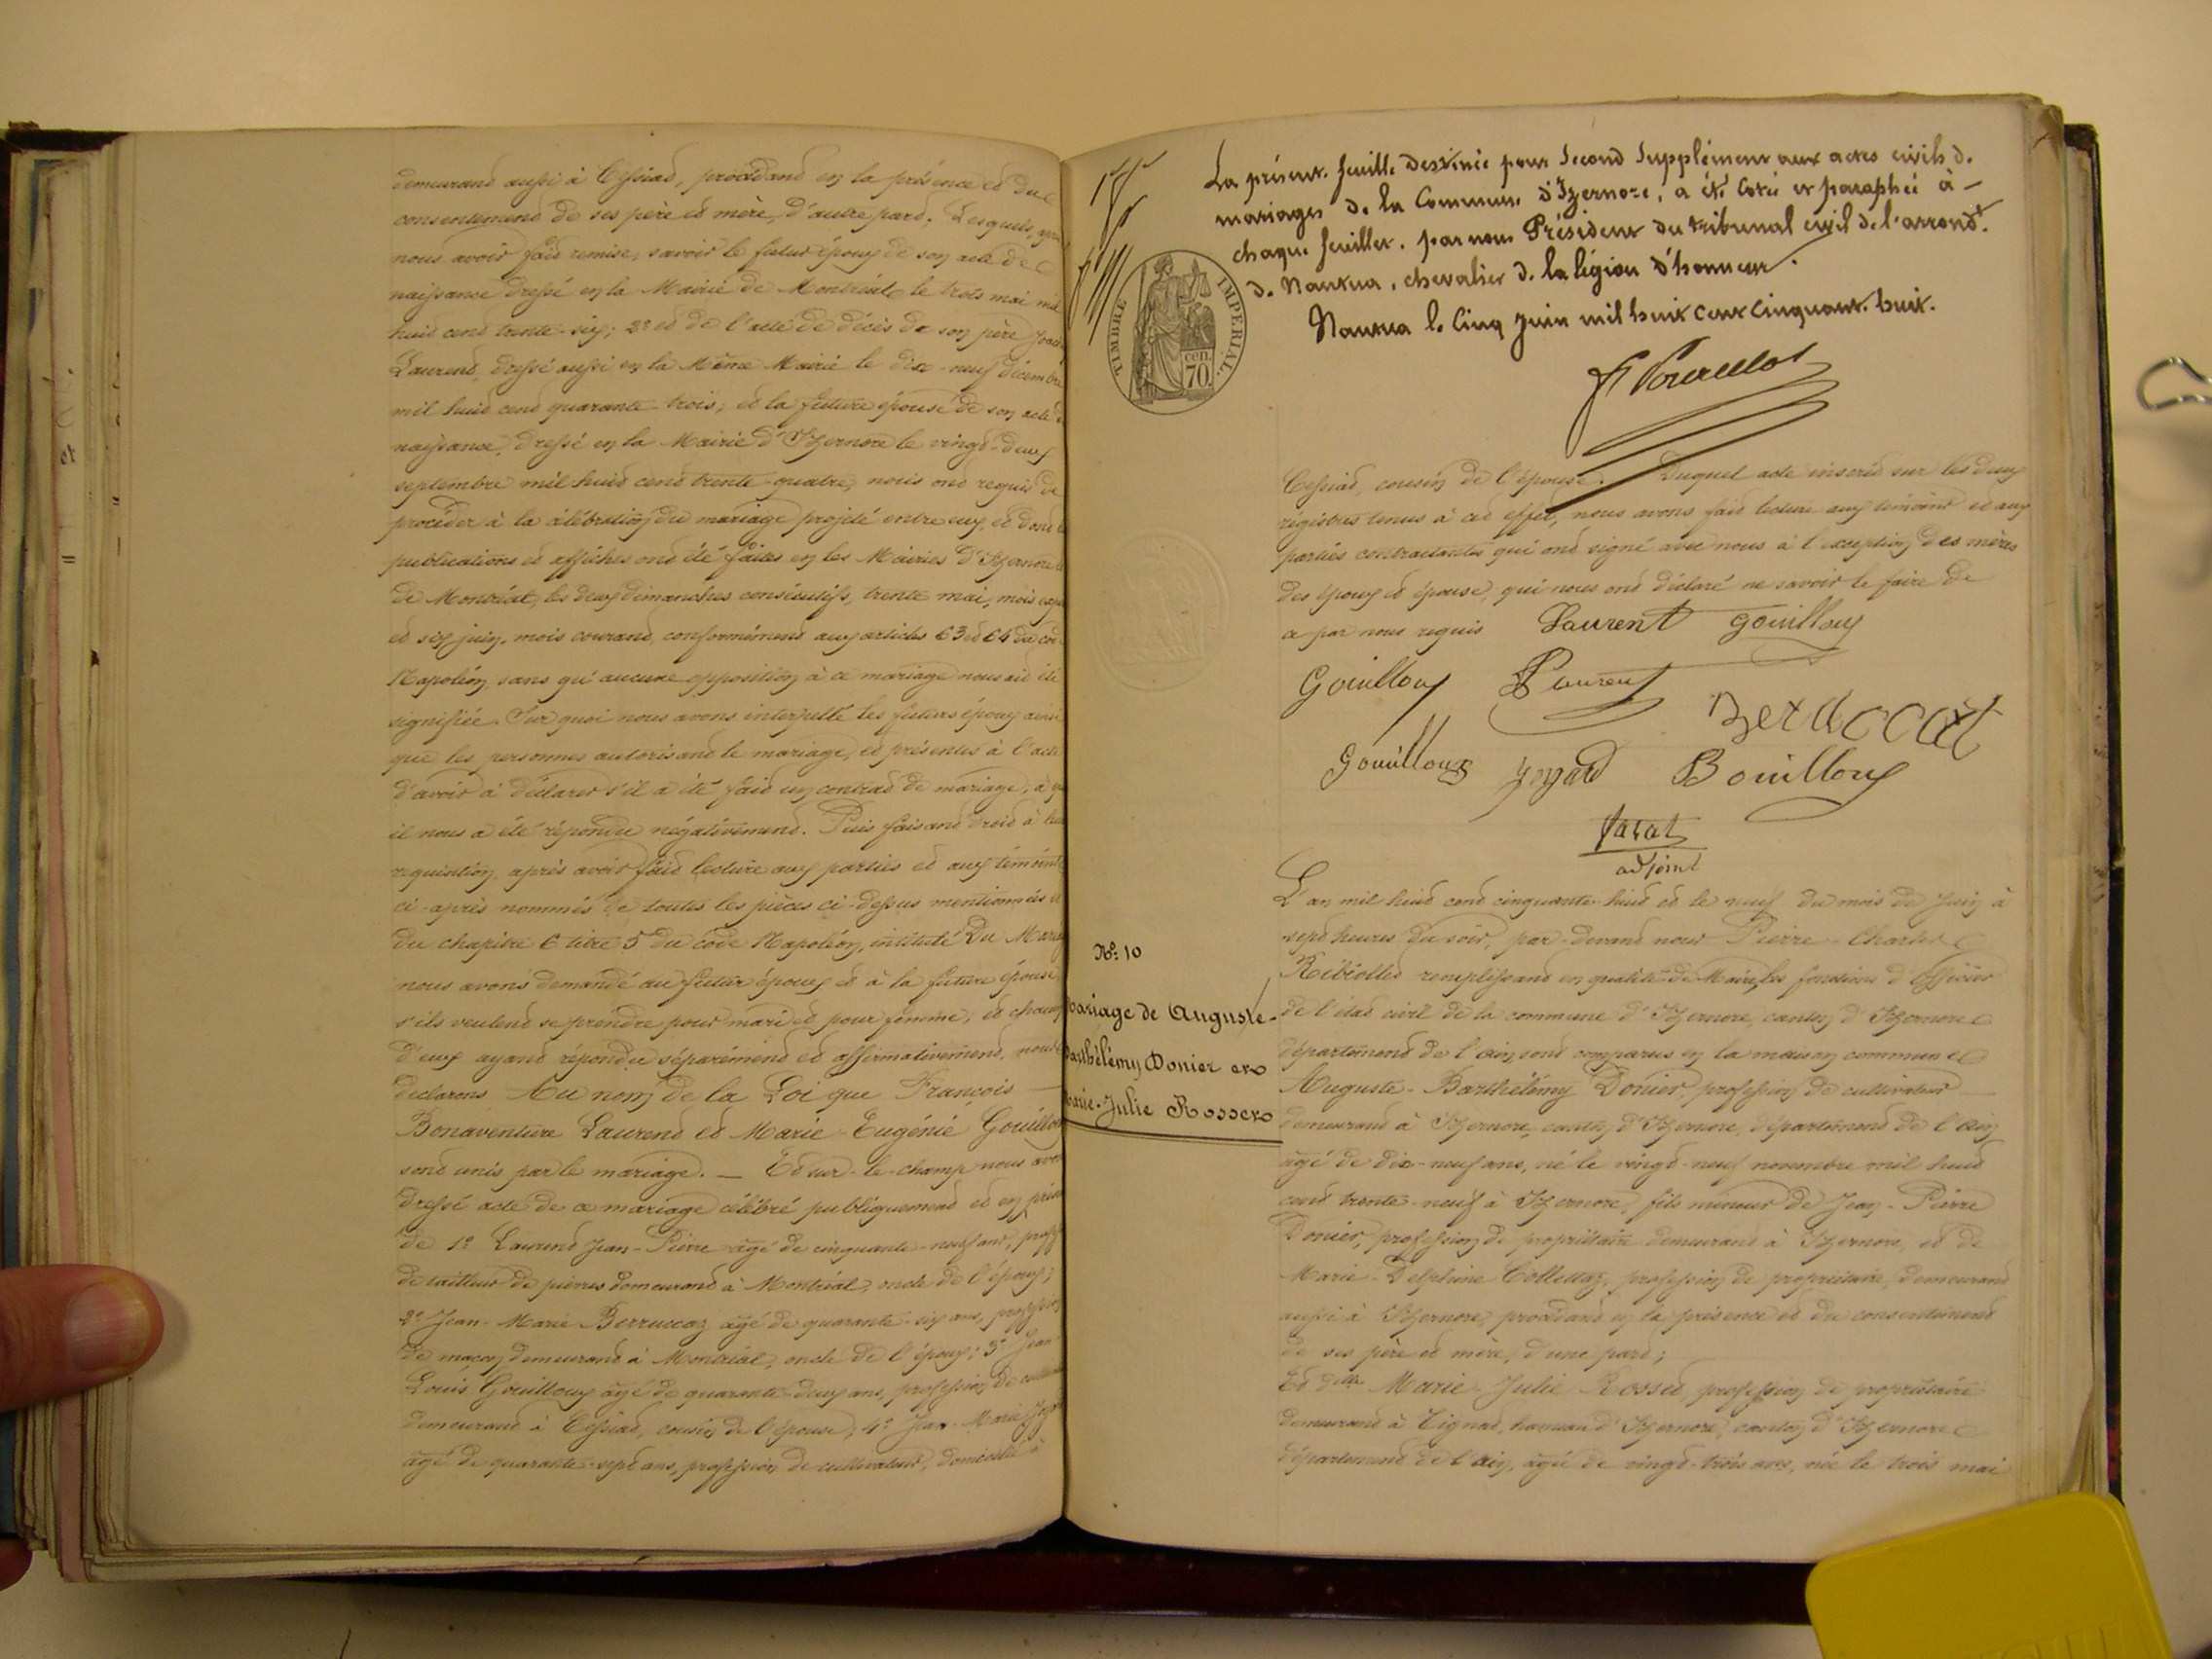 demeurant aussi à Cessiad, procédant en la présence et du
consentement de ses père et mère, d'autre part; Lesquels,
nous avoir fait remise, savoir le futur époux de son acte de
naissance dressé en la Mairie de Montréal le trois mai mil
huit cent trente-six; 2° et de l'acte de décès de son père
Laurent, dressé aussi en la Même Mairie le dix-neuf décembre
mil huit cent quarante-trois; et la future épouse de son acte de
naissance, dressé en la Mairie d'Izernore le vingt-deux
septembre mil huit cent trente-quatre, nous ont requis de
procéder à la célébration du mariage projeté entre eux, et dont
publications et affiches ont été faites en les Mairies d'Izernore
de Montréal, les deux dimanches consécutifs, trente mai, mois
et six juin, mois courant, conformément aux articles 63 et 64 du
Napoléon, sans qu'aucune opposition à ce mariage nous ait été
signifiée. Sur quoi nous avons interpellé les futurs époux ainsi
que les personnes autorisant le mariage, et présentes à l'acte
d'avoir à déclarer s'il a été fait un contrat de mariage, à
il nous a été répondu négativement. Puis faisant droit à
réquisition, après avoir fait lecture aux parties et aux témoins
ci-après nommés de toutes les pièces ci-dessus mentionnées
du chapitre 6 titre 5 du code Napoléon, intitulé Du
nous avons demandé au futur époux et à la future épouse
s'ils veulent se prendre pour mari et pour femme, et chacun
d'eux ayant répondu séparément et affirmativement, nous
déclarons Au nom de la Loi que François
Bonaventure Laurent et Marie-Eugénie Gouilloux
sont unis par le mariage. — Et sur-le-champ nous
dressé acte de ce mariage célébré publiquement et en
de 1° Laurent Jean-Pierre âgé de cinquante-neuf ans,
de tailleur de pierres demeurant à Montréal, oncle de l'époux;
2° Jean-Marie Berruccoz âgé de quarante-six ans, profession
de maçon, demeurant à Montréal, oncle de l'époux; 3° Jean
Louis Gouilloux âgé de quarante-deux ans, profession de
demeurant à Cessiad, cousin de l'épouse; 4° Jean-Marie
âgé de quarante-sept ans, profession de cultivateur, domicilié à
La présente feuille destinée pour Second Supplément aux actes civils de
mariages de la Commune d'Izernore, a été Coté et paraphée à
chaque feuillet. par nous Président du tribunal civil de l'arrondt
de Nantua, chevalier de la légion d'honneur.
Nantua le Cinq juin mil huit Cent Cinquante-huit.
TIMBRE IMPERIAL.
cen.
70.
Cessiad, cousin de l'épouse. Duquel acte inscrit sur les deux
régistres tenus à cet effet, nous avons fait lecture aux témoins et aux
parties contractantes qui ont signé avec nous à l'exception des mères
des époux et épouse, qui nous ont déclaré ne savoir le faire de
ce par nous requis Laurent Gouilloux
Gouilloux Laurent
Gouilloux Bouilloux
adjoint
No: 10
Mariage de Auguste-
Barthélémy Donier et
Marie-Julie Rosset
L'an mil huit cent cinquante-huit et le neuf du mois de Juin à
sept heures du soir, par-devant nous Pierre-Charles
Ribiollet remplissant en qualité de Maire, les fonctions d'Officier
de l'état civil de la commune d'Izernore, canton d'Izernore
département de l'Ain, sont comparus en la maison commune
Auguste-Barthélémy Donier, profession de cultivateur
demeurant à Izernore, canton d'Izernore, département de l'Ain
âgé de dix-neuf ans, né le vingt-neuf novembre mil huit
cent trente-neuf à Izernore, fils mineur de Jean-Pierre
Donier, profession de propriétaire demeurant à Izernore, et de
Marie-Delphine Collettaz, profession de propriétaire, demeurant
aussi à Izernore, procédant en la présence et du consentement
de ses père et mère, d'une part;
Et dlle Marie-Julie Rosset, profession de propriétaire
demeurant à Tignat, hameau d'Izernore, canton d'Izernore
département de l'Ain, âgée de vingt-trois ans, née le trois mai